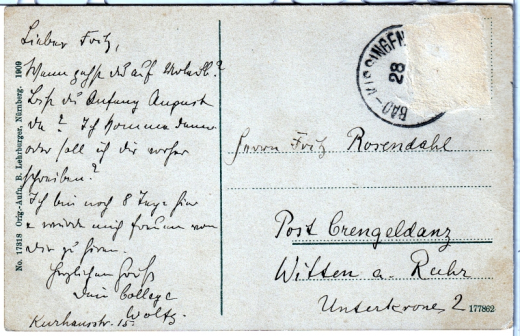 Lieber Fritz,
Wann gehst du auf Urlaub?
Bist du Anfang August
da? Ich komme dann
oder soll ich dir vorher
schreiben?
Ich bin noch 8 Tage hier
u. würde mich freuen von
dir zu hören.
Herzlichen Gruß
Dein College
Kurhausstr. 15.
No. 17318 Orig.-Aufn. B. Lehrburger, Nürnberg. 1909
BAD-KISSINGEN
28
Herrn Fritz Rosendahl
Post Crengeldanz
Witten a. Ruhr
Unterkrone 2
177862